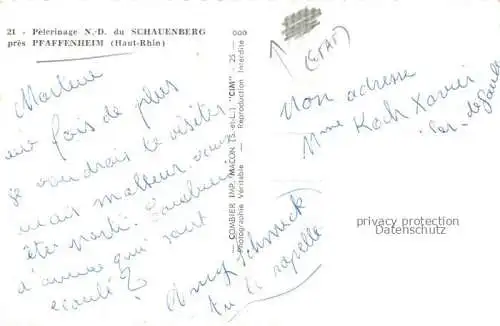 21 - Pèlerinage N.-D. du SCHAUENBERG
près PFAFFENHEIM (Haut-Rhin)
Marlène
une fois de plus
je voudrais te visiter
mais malheur vous
êtes parti. Combien
d'années qui sont
écoulé?
COMBIER IMP. MACON (S.-et-L.) "CIM" - 25 - 000
Photographie Véritable - Reproduction Interdite
(ETAT)
Mon adresse
Mme Koch Xavier
de Gaulle
Schmuck
Tu te rapelle
privacy protection
Datenschutz